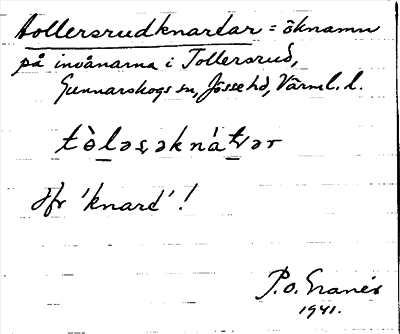 tollersrudknartar = öknamn
på invånarna i Tollersrud,
Gunnarskogs sn, Jösse hd, Värml. l.
tòləsəknátər
Jfr 'knard'!
P.O. Granér
1941.